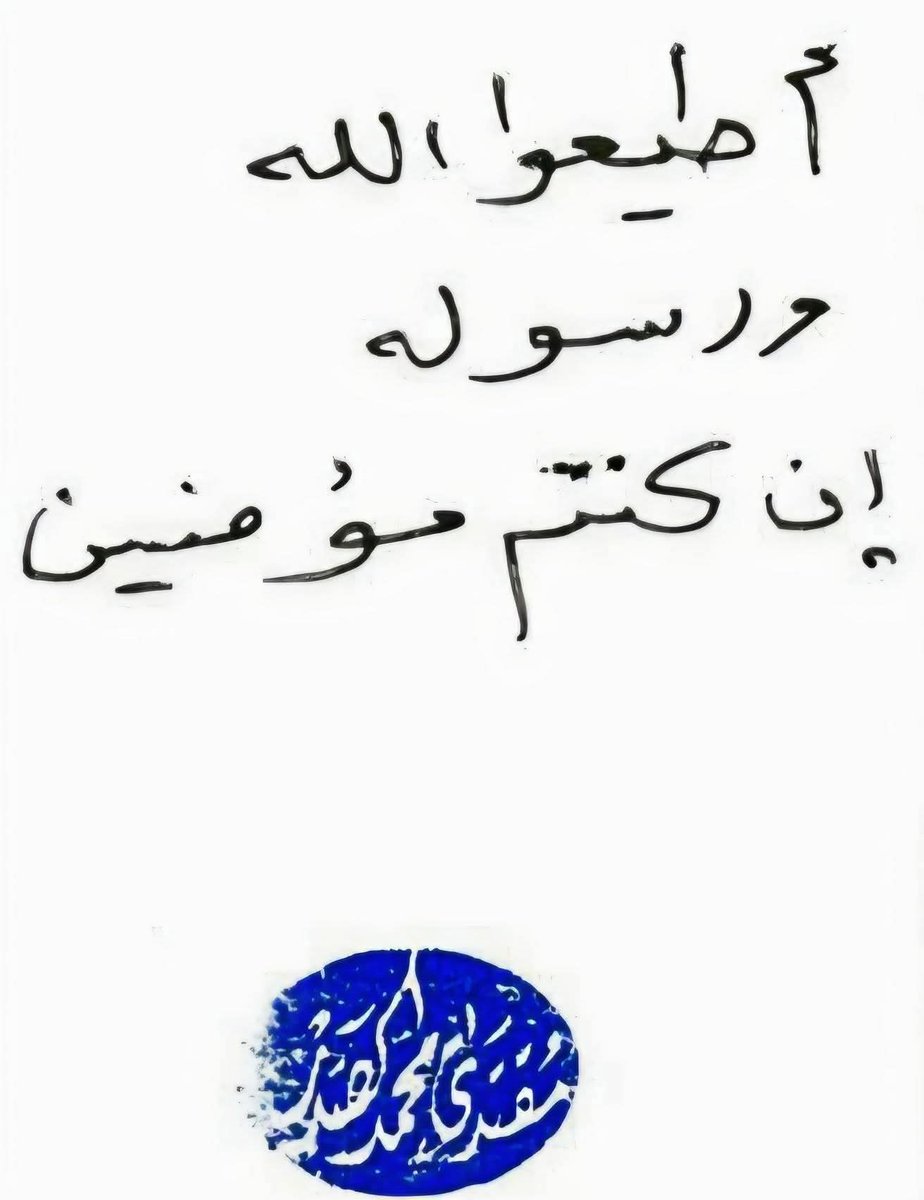 أطيعوا الله
ورسوله
إن كنتم مؤمنين
مقتدى محمد الصدر